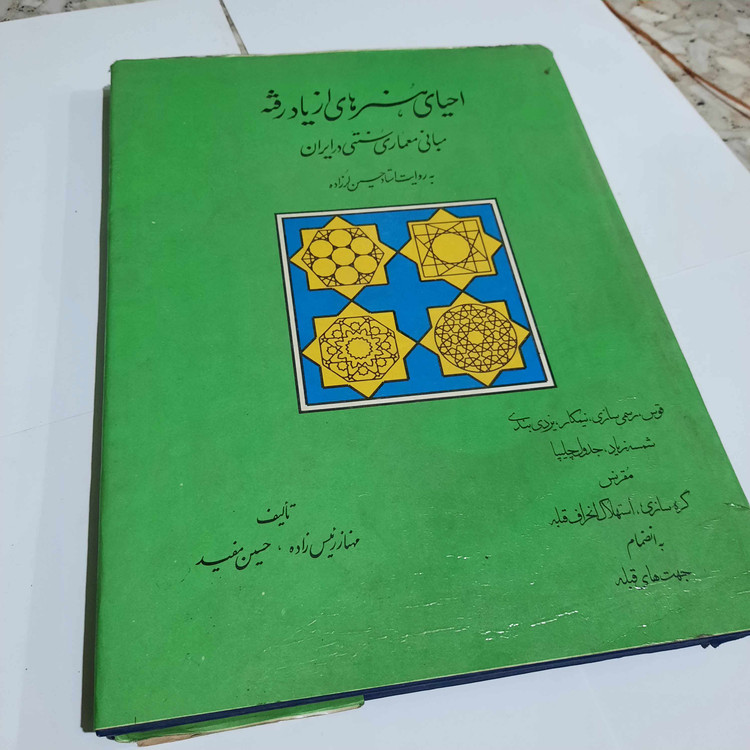 احیای هنرهای از یاد رفته
مبانی معماری سنتی در ایران
به روایت استاد حسین لرزاده
قوس، رسمی سازی، نیم‌کار، یزدی بندی
شمسه زیاد، جدول چلیپا
مقرنس
گره سازی، استهلاک انحراف قبله
به انضمام
جهت های قبله
تألیف
مهناز رئیس زاده، حسین مفید